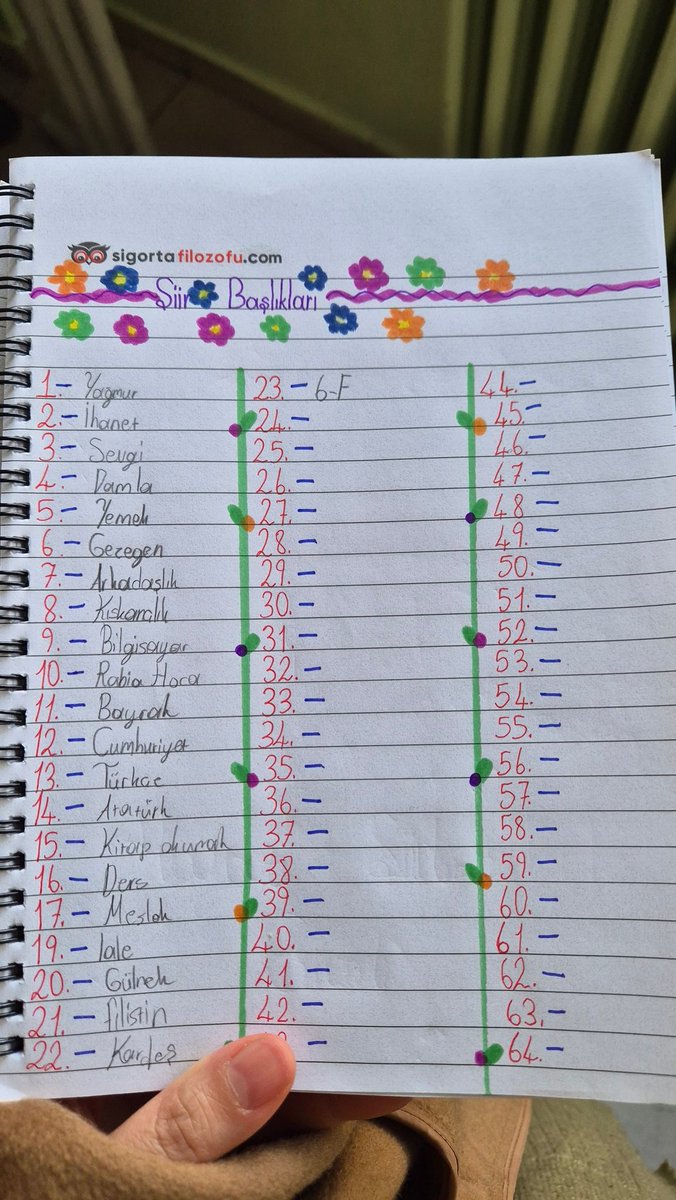 sigortafilozofu.com
Şiir Başlıkları
1.- Yağmur
2.- İhanet
3.- Sevgi
4.- Damla
5.- Yemek
6.- Gezegen
7.- Arkadaşlık
8.-
9.- Bilgisayar
10.- Rabia Hoca
11.- Bayrak
12.- Cumhuriyet
13.- Türkçe
14.- Atatürk
15.- Kitap okumak
16.- Ders
17.- Meslek
19.- lale
20.- Gülmek
21.- filistin
22.- Kardeş
23.- 6-F
24.-
25.-
26.-
27.-
28.-
29.-
30.-
31.-
32.-
33.-
34.-
35.-
36.-
37.-
38.-
39.-
40.-
41.-
42.-
44.-
45.-
46.-
47.-
48-
49.-
50.-
51.-
52.-
53.-
54.-
55.-
56.-
57.-
58.-
59.-
60.-
61.-
62.-
63.-
64.-